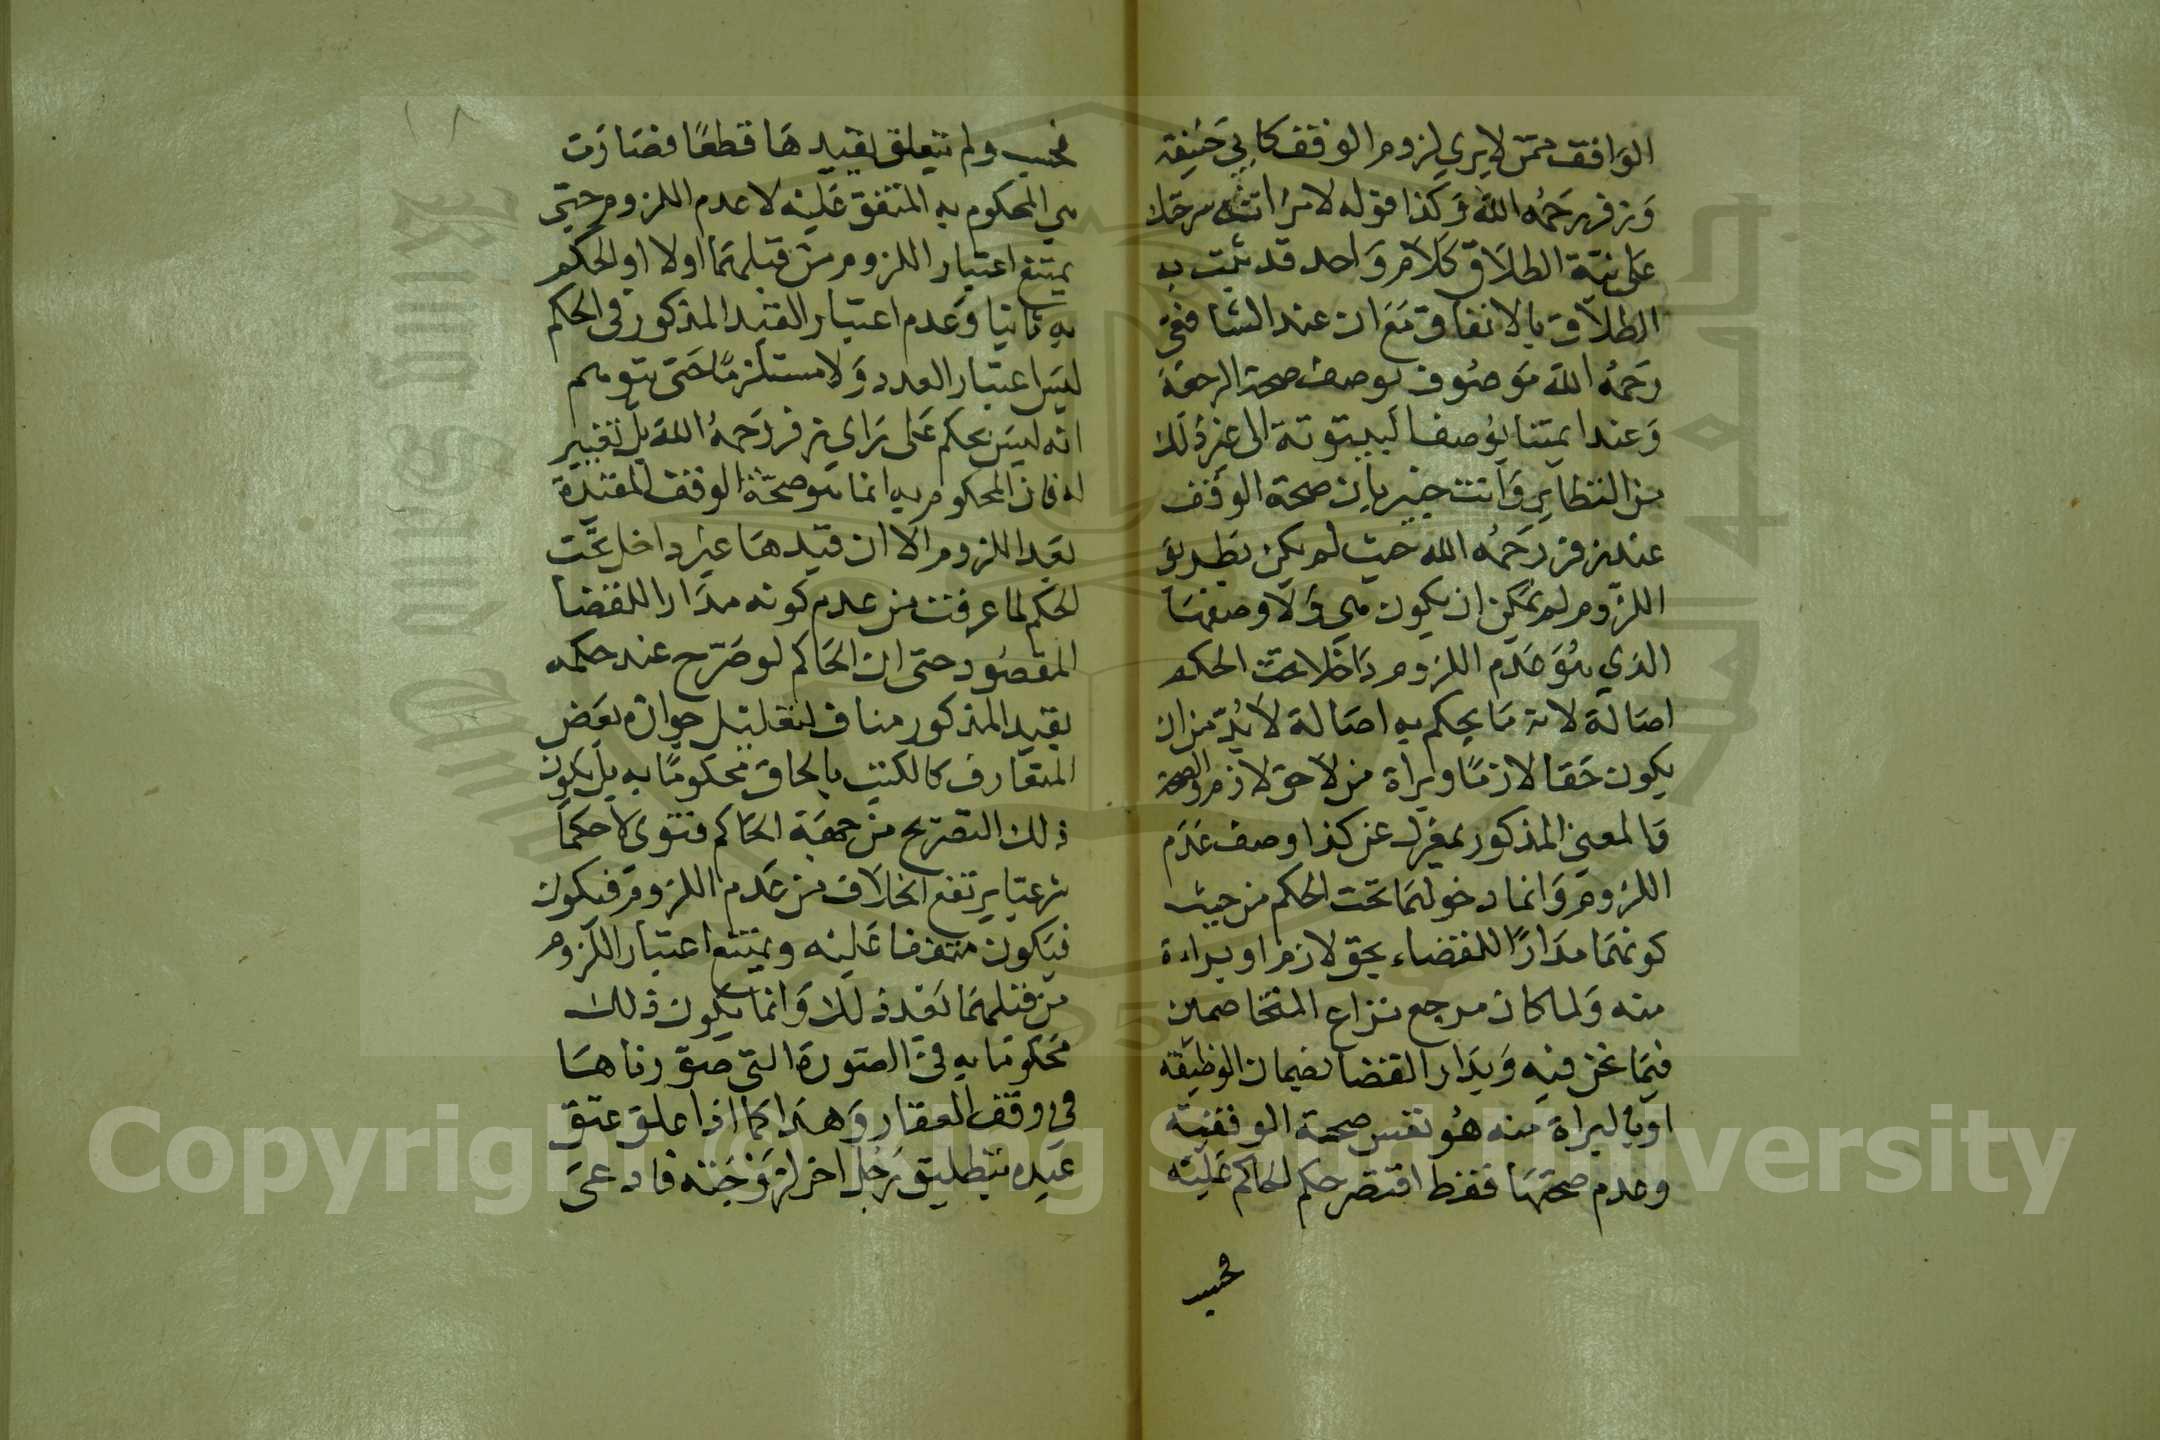 الواقف ممن لا يرى لزوم الوقف كابي حنيفة
وزفر رحمه الله وكذا قوله لامراته سرحتك
على نية الطلاق كلام واحد قد ثبت به
الطلاق بالاتفاق مع ان عند الشافعي
رحمه الله موصوف بوصف صحة الرجعة
وعند ايمتنا بوصف البينونة الى غير ذلك
من النظاير وانت خبير بان صحة الوقف
عند زفر رحمه الله حيث لم يكن بطريق
اللزوم لم يمكن ان يكون هي ولا وصفها
الذي هو عدم اللزوم داخلا تحت الحكم
اصالة لانه ما يحكم به اصالة لا بد من ان
يكون حقا لازما او براة من لا حق لازم والصحة
بالمعنى المذكور بمعزل عن كذا وصف عدم
اللزوم وانما دخولهما تحت الحكم من حيث
كونهما مدارا للقضاء بحق لازم او براءة
منه ولما كان مرجع نزاع المتخاصمين
فيما نحن فيه ومدار القضا بضمان الوظيفة
او بالبراة منه هو نفس صحة الوقفية
وعدم صحتها فقط اقتصر حكم الحاكم عليه
فحسب
١٨
فحسب ولم يتعلق بقيدها قطعا فصارت
هي المحكوم به المتفق عليه لا عدم اللزوم حتى
يمتنع اعتبار اللزوم من قبلهما اولا او الحكم
به ثانيا وعدم اعتبار القيد المذكور في الحكم
ليس اعتبار العدد ولا مستلزما حتى يتوهم
انه ليس بحكم على راي زفر رحمه الله بل تغيير
له فان المحكوم به انما هو صحة الوقف المقيدة
بعد اللزوم الا ان قيدها غير داخل تحت
الحكم لما عرفت من عدم كونه مدارا للقضا
المقصود حتى ان الحاكم لو صرح عند حكمه
بقيد المذكور مناف لتعليل جوازه بعض
المتعارف كالكتب بالحاق محكوما به بل يكون
ذلك التصريح من جهة الحاكم فتوى لا حكما
شرعيا يرتفع الخلاف من عدم اللزوم فيكون
فيكون متفقا عليه ويمتنع اعتبار اللزوم
من قبلهما بعد ذلك وانما يكون ذلك
محكوما به في الصورة التي صورناها
في وقف العقار وهذا كما اذا علق عتق
عبده بتطليق رجل اخر لزوجته فادعى
Copyright © King Saud University